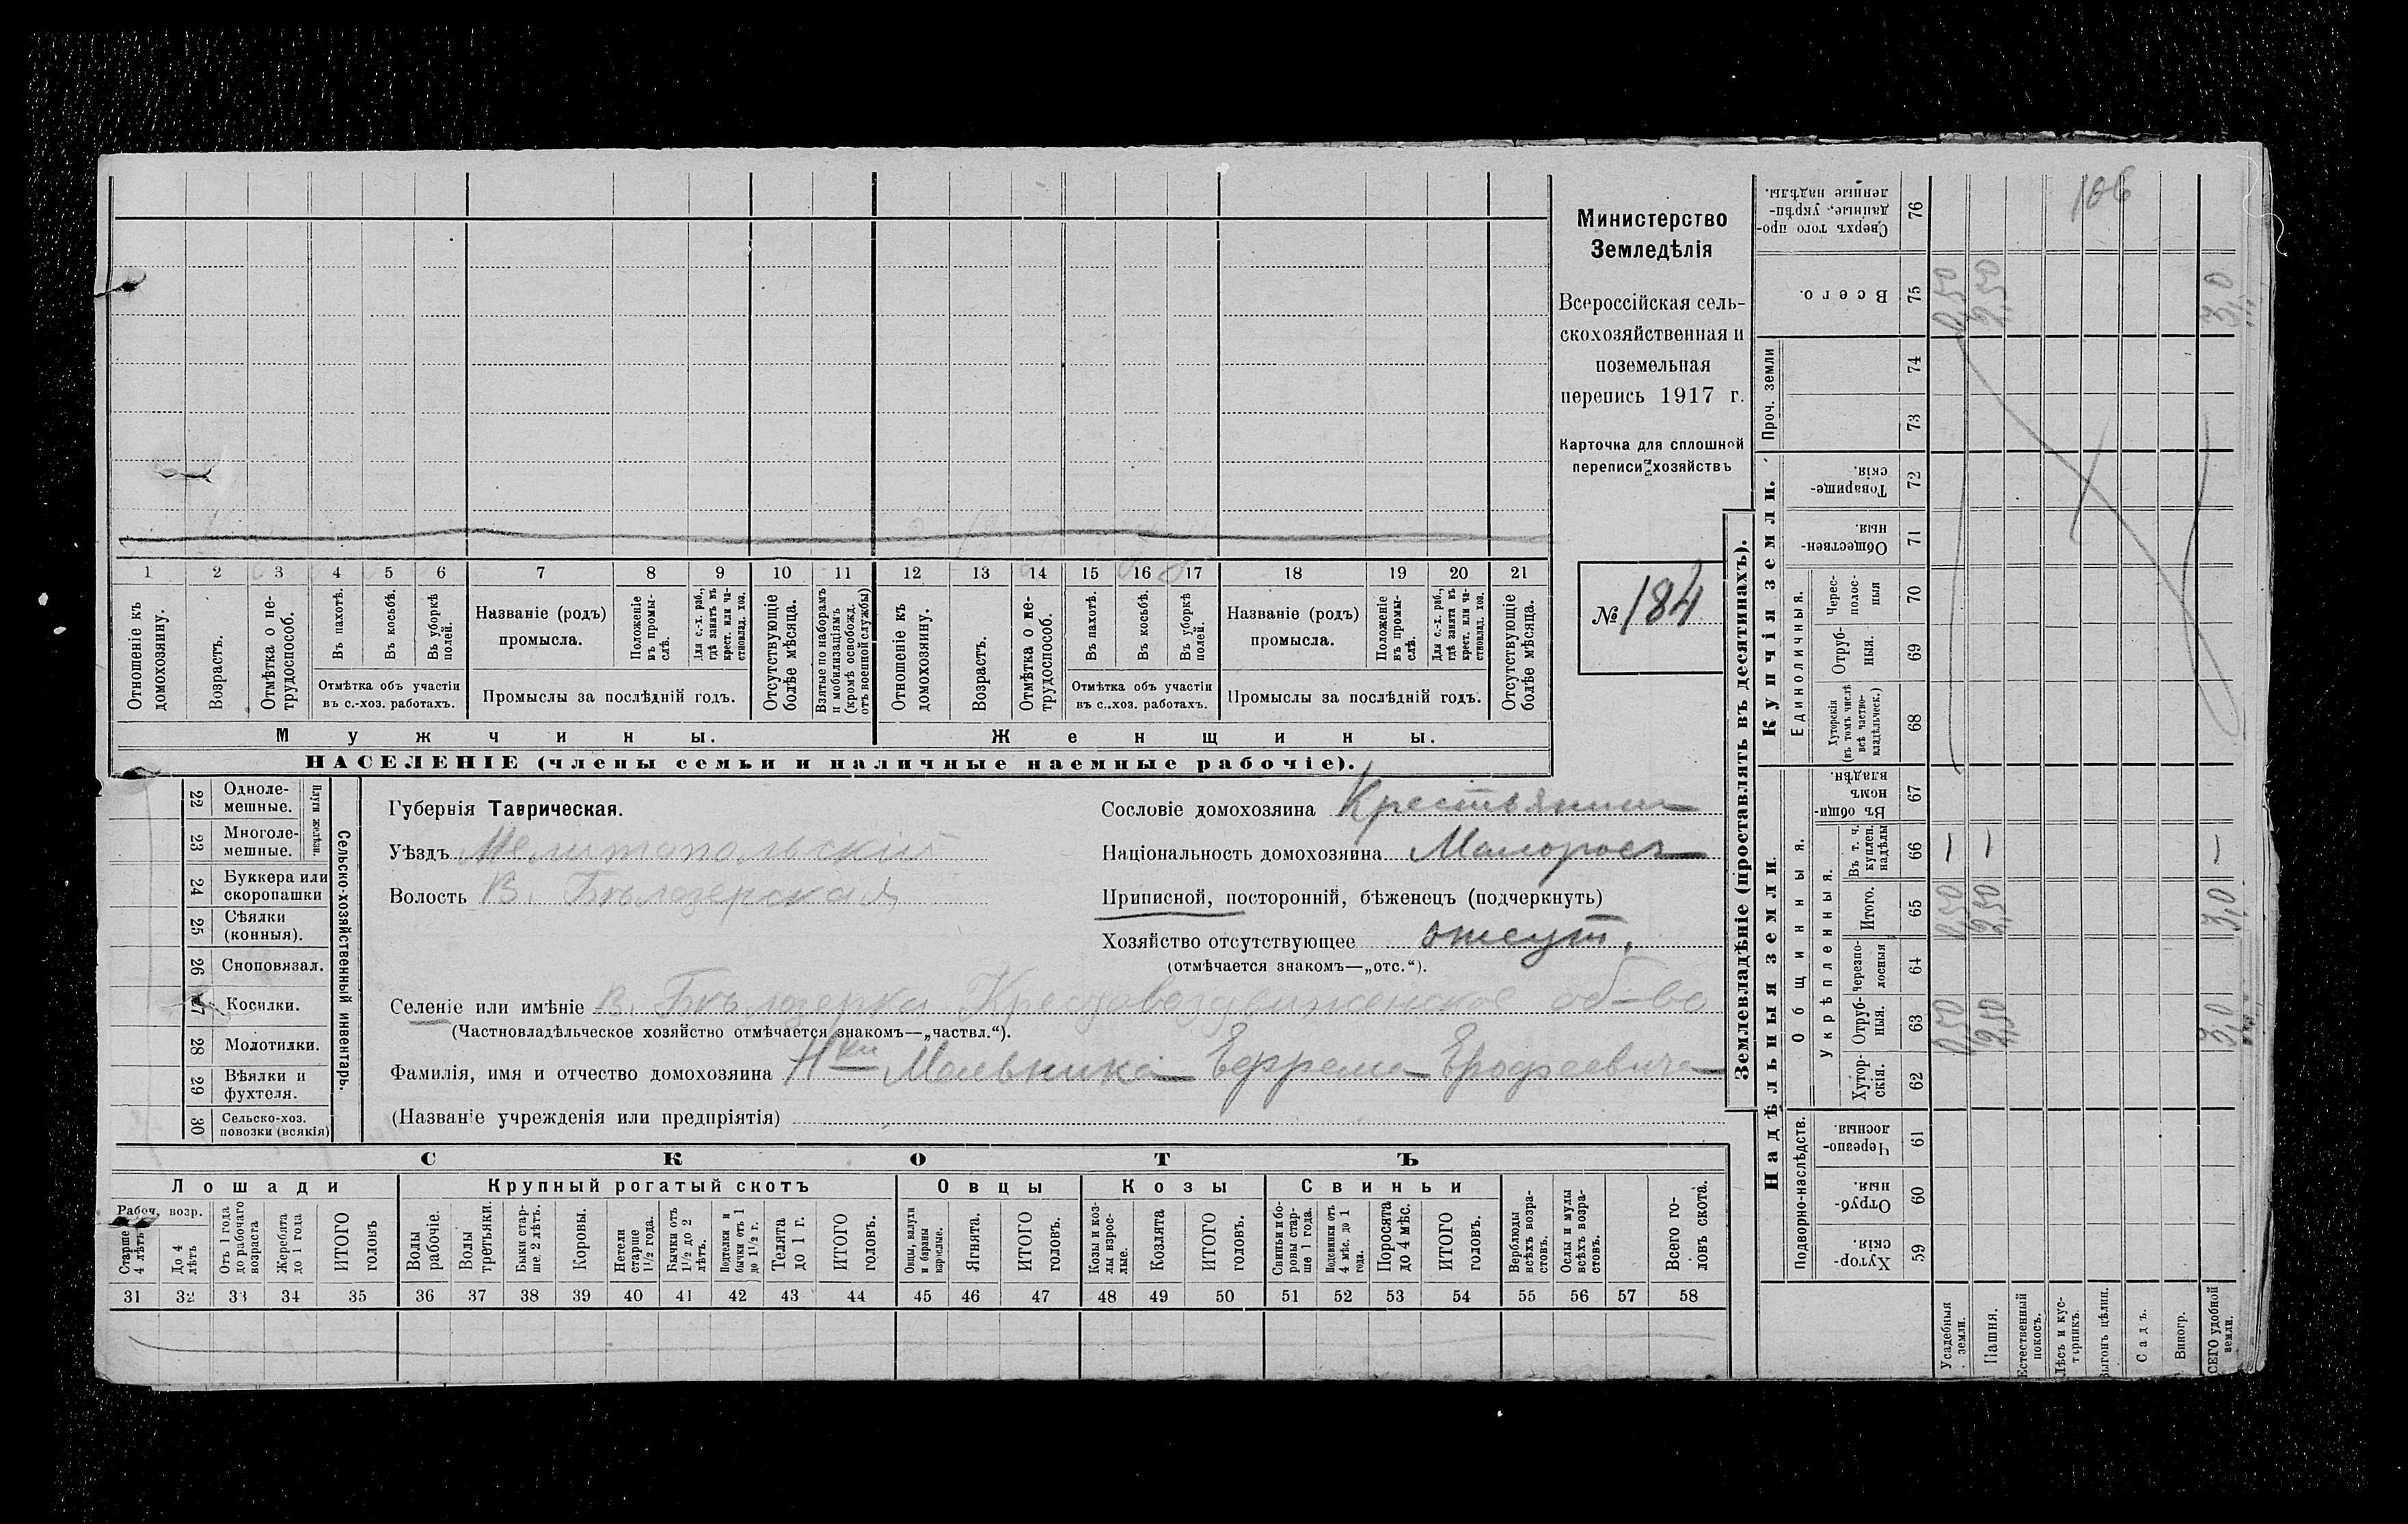 Министерство
Земледѣлія
Всероссійская сель-
скохозяйственная и
поземельная
перепись 1917 г.
Карточка для сплошной
переписи хозяйствъ
№ 184
1 2 3 4 5 6 7 8 9 10 11 12 13 14 15 16 17 18 19 20 21
Отношеніе къ домохозяину.
Возрастъ.
Отмѣтка о не-трудоспособ.
Въ пахотѣ.
Въ косьбѣ.
Въ уборкѣ полей.
Отмѣтка объ участіи
въ с.-хоз. работахъ.
Названіе (родъ)
промысла.
Положеніе въ промы-слѣ.
Для с.-х. раб., гдѣ занятъ въ крест. или ча-стновлад. хоз.
Промыслы за послѣдній годъ.
Отсутствующіе болѣе мѣсяца.
Взятые по наборамъ и мобилизаціямъ (кромѣ освобожд. отъ военной службы)
Отношеніе къ домохозяину.
Возрастъ.
Отмѣтка о не-трудоспособ.
Въ пахотѣ.
Въ косьбѣ.
Въ уборкѣ полей.
Отмѣтка объ участіи
въ с..хоз. работахъ.
Названіе (родъ)
промысла.
Положеніе въ промы-слѣ.
Для с.-х. раб., гдѣ занята въ крест. или ча-стновлад. хоз.
Промыслы за послѣдній годъ.
Отсутствующіе болѣе мѣсяца.
Мужчины.
Женщины.
НАСЕЛЕНІЕ (члены семьи и наличные наемные рабочіе).
Сельско-хозяйственный инвентарь.
Плуги желѣзн.
22 Одноле-мешные.
23 Многоле-мешные.
24 Буккера или скоропашки
25 Сѣялки (конныя).
26 Сноповязал.
27 Косилки.
28 Молотилки.
29 Вѣялки и фухтеля.
30 Сельско-хоз. повозки (всякія)
Губернія Таврическая.
Уѣздъ Мелитопольскій
Волость В. Бѣлозерская
Сословіе домохозяина Крестьянин
Національность домохозяина Малоросъ
Приписной, посторонній, бѣженецъ (подчеркнуть)
Хозяйство отсутствующее отсут.
(отмѣчается знакомъ—„отс.“).
Селеніе или имѣніе В. Бѣлозерка Крестовоздвиженское об-во
(Частновладѣльческое хозяйство отмѣчается знакомъ—„частвл.“).
Фамилія, имя и отчество домохозяина Н-ки Мельника Ефрема Ерофеевича
(Названіе учрежденія или предпріятія)
СКОТЪ
Лошади
Крупный рогатый скотъ
Овцы
Козы
Свиньи
Рабоч. возр.
Старше 4 лѣтъ
До 4 лѣтъ
Отъ 1 года до рабочаго возраста
Жеребята до 1 года
ИТОГО головъ
Волы рабочіе.
Волы третьяки.
Быки стар-ше 2 лѣтъ.
Коровы.
Нетели старше 1½ года.
Бычки отъ 1½ до 2 лѣтъ.
Подтелки и бычки отъ 1 до 1½ г.
Телята до 1 г.
ИТОГО головъ.
Овцы, валухи и бараны взрослые.
Ягнята.
ИТОГО головъ.
Козы и коз-лы взрос-лые.
Козлята
ИТОГО головъ.
Свиньи и бо-ровы стар-ше 1 года.
Подсвинки отъ 4 мѣс. до 1 года.
Поросята до 4 мѣс.
ИТОГО головъ.
Верблюды всѣхъ возра-стовъ.
Ослы и мулы всѣхъ возра-стовъ.
Всего го-ловъ скота.
31 32 33 34 35 36 37 38 39 40 41 42 43 44 45 46 47 48 49 50 51 52 53 54 55 56 57 58
Землевладѣніе (проставлять въ десятинахъ).
Купчія земли.
Надѣльныя земли.
Проч. земли
Единоличныя.
Общинныя.
Укрѣпленныя.
Подворно-наслѣдств.
Сверхъ того про-данные, укрѣп-ленные надѣлы. 76
Всего. 75 0,50 2,50 3,0
74
73
Товарище-скія. 72
Обществен-ныя. 71
Черес-полос-ныя 70
Отруб-ныя. 69
Хуторскія (въ томъ числѣ всѣ частно-владѣльческ.) 68
Въ общин-номъ владѣн. 67
Въ т. ч. куплен. надѣлы 66 — — —
Итого. 65 0,50 2,50 3,0
черезпо-лосныя 64
Отруб-ныя. 63 0,50 2,50 3,0
Хутор-скія. 62
Черезпо-лосныя. 61
Отруб-ныя. 60
Хутор-скія. 59
Усадебныя земли.
Пашня.
Естественный покосъ.
Лѣсъ и кус-тарникъ.
Выгонъ цѣлин.
Садъ.
Виногр.
ВСЕГО удобной земли.